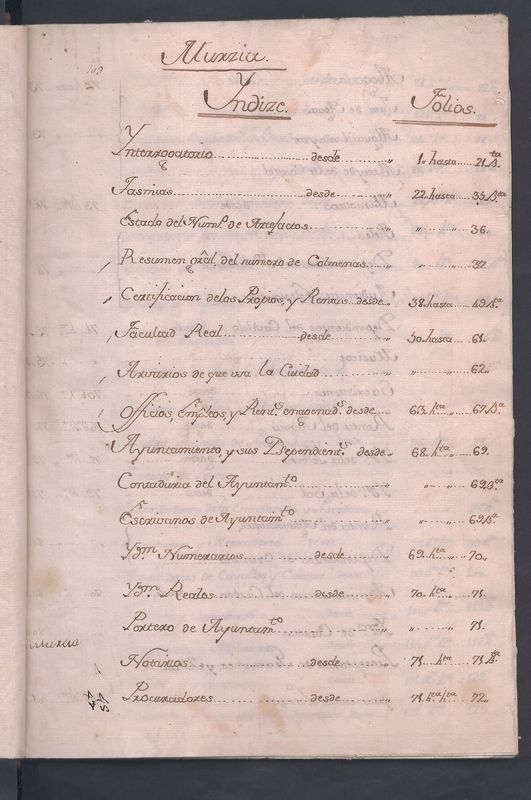 103
Murzia.
Yndize.
Folios.
Ynterrogatorio desde 1. hasta 21 B.ta
Tasmias desde 22 hasta 35 B.ta
Estado del Num.o de Artefactos 36.
Resumen gral. del numero de Colmenas 37
Certificacion de los Propios, y Rentas desde 38 hasta 49 B.ta
Facultad Real desde 50 hasta 61.
Arvitrios de que usa la Ciudad 62
Officios, emp.tos y Rent.s enagenad.s desde 63 h.ta 67 B.a
Ayuntamiento, y sus Dependient.s desde 68 h.ta 69.
Contaduria del Ayuntam.to 69 B.ta
Escrivanos de Ayuntam.to 69 B.a
Yd.m Numerarios desde 69 h.ta 70
Yd.m Reales desde 70 h.ta 71.
Portero de Ayuntam.to 71.
Murcia
Notarios desde 71 h.ta 71 B.a
Procuradores desde 71 b.ta h.ta 72